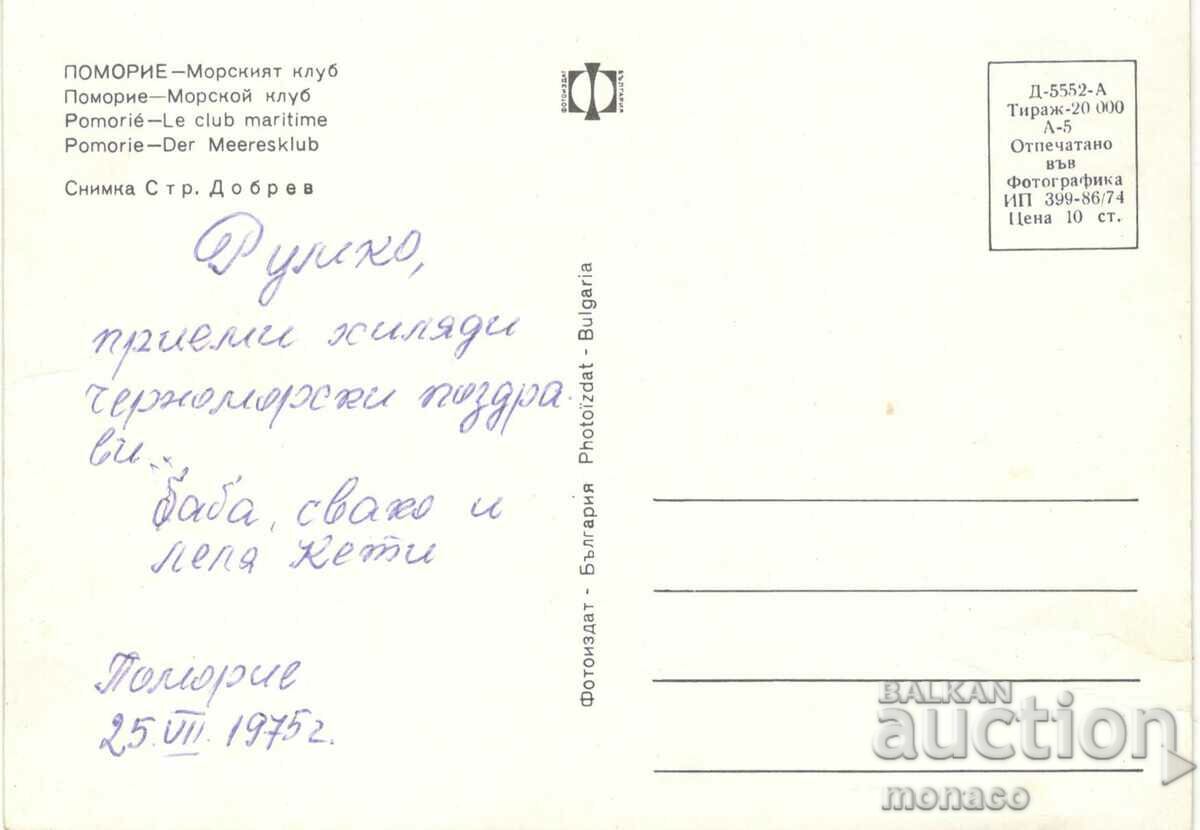 ПОМОРИЕ—Морският клуб
Поморие—Морской клуб
Pomorié—Le club maritime
Pomorie—Der Meeresklub
Снимка Стр. Добрев
Румко,
приеми хиляди
черноморски поздра-
ви..
баба, свако и
леля Кети
Поморие
25.VII.1975г.
Фотоиздат - България Photoïzdat - Bulgaria
ФОТОИЗДАТ
БЪЛГАРИЯ
Д-5552-А
Тираж-20 000
А-5
Отпечатано
във
Фотографика
ИП 399-86/74
Цена 10 ст.
BALKAN
auction
monaco